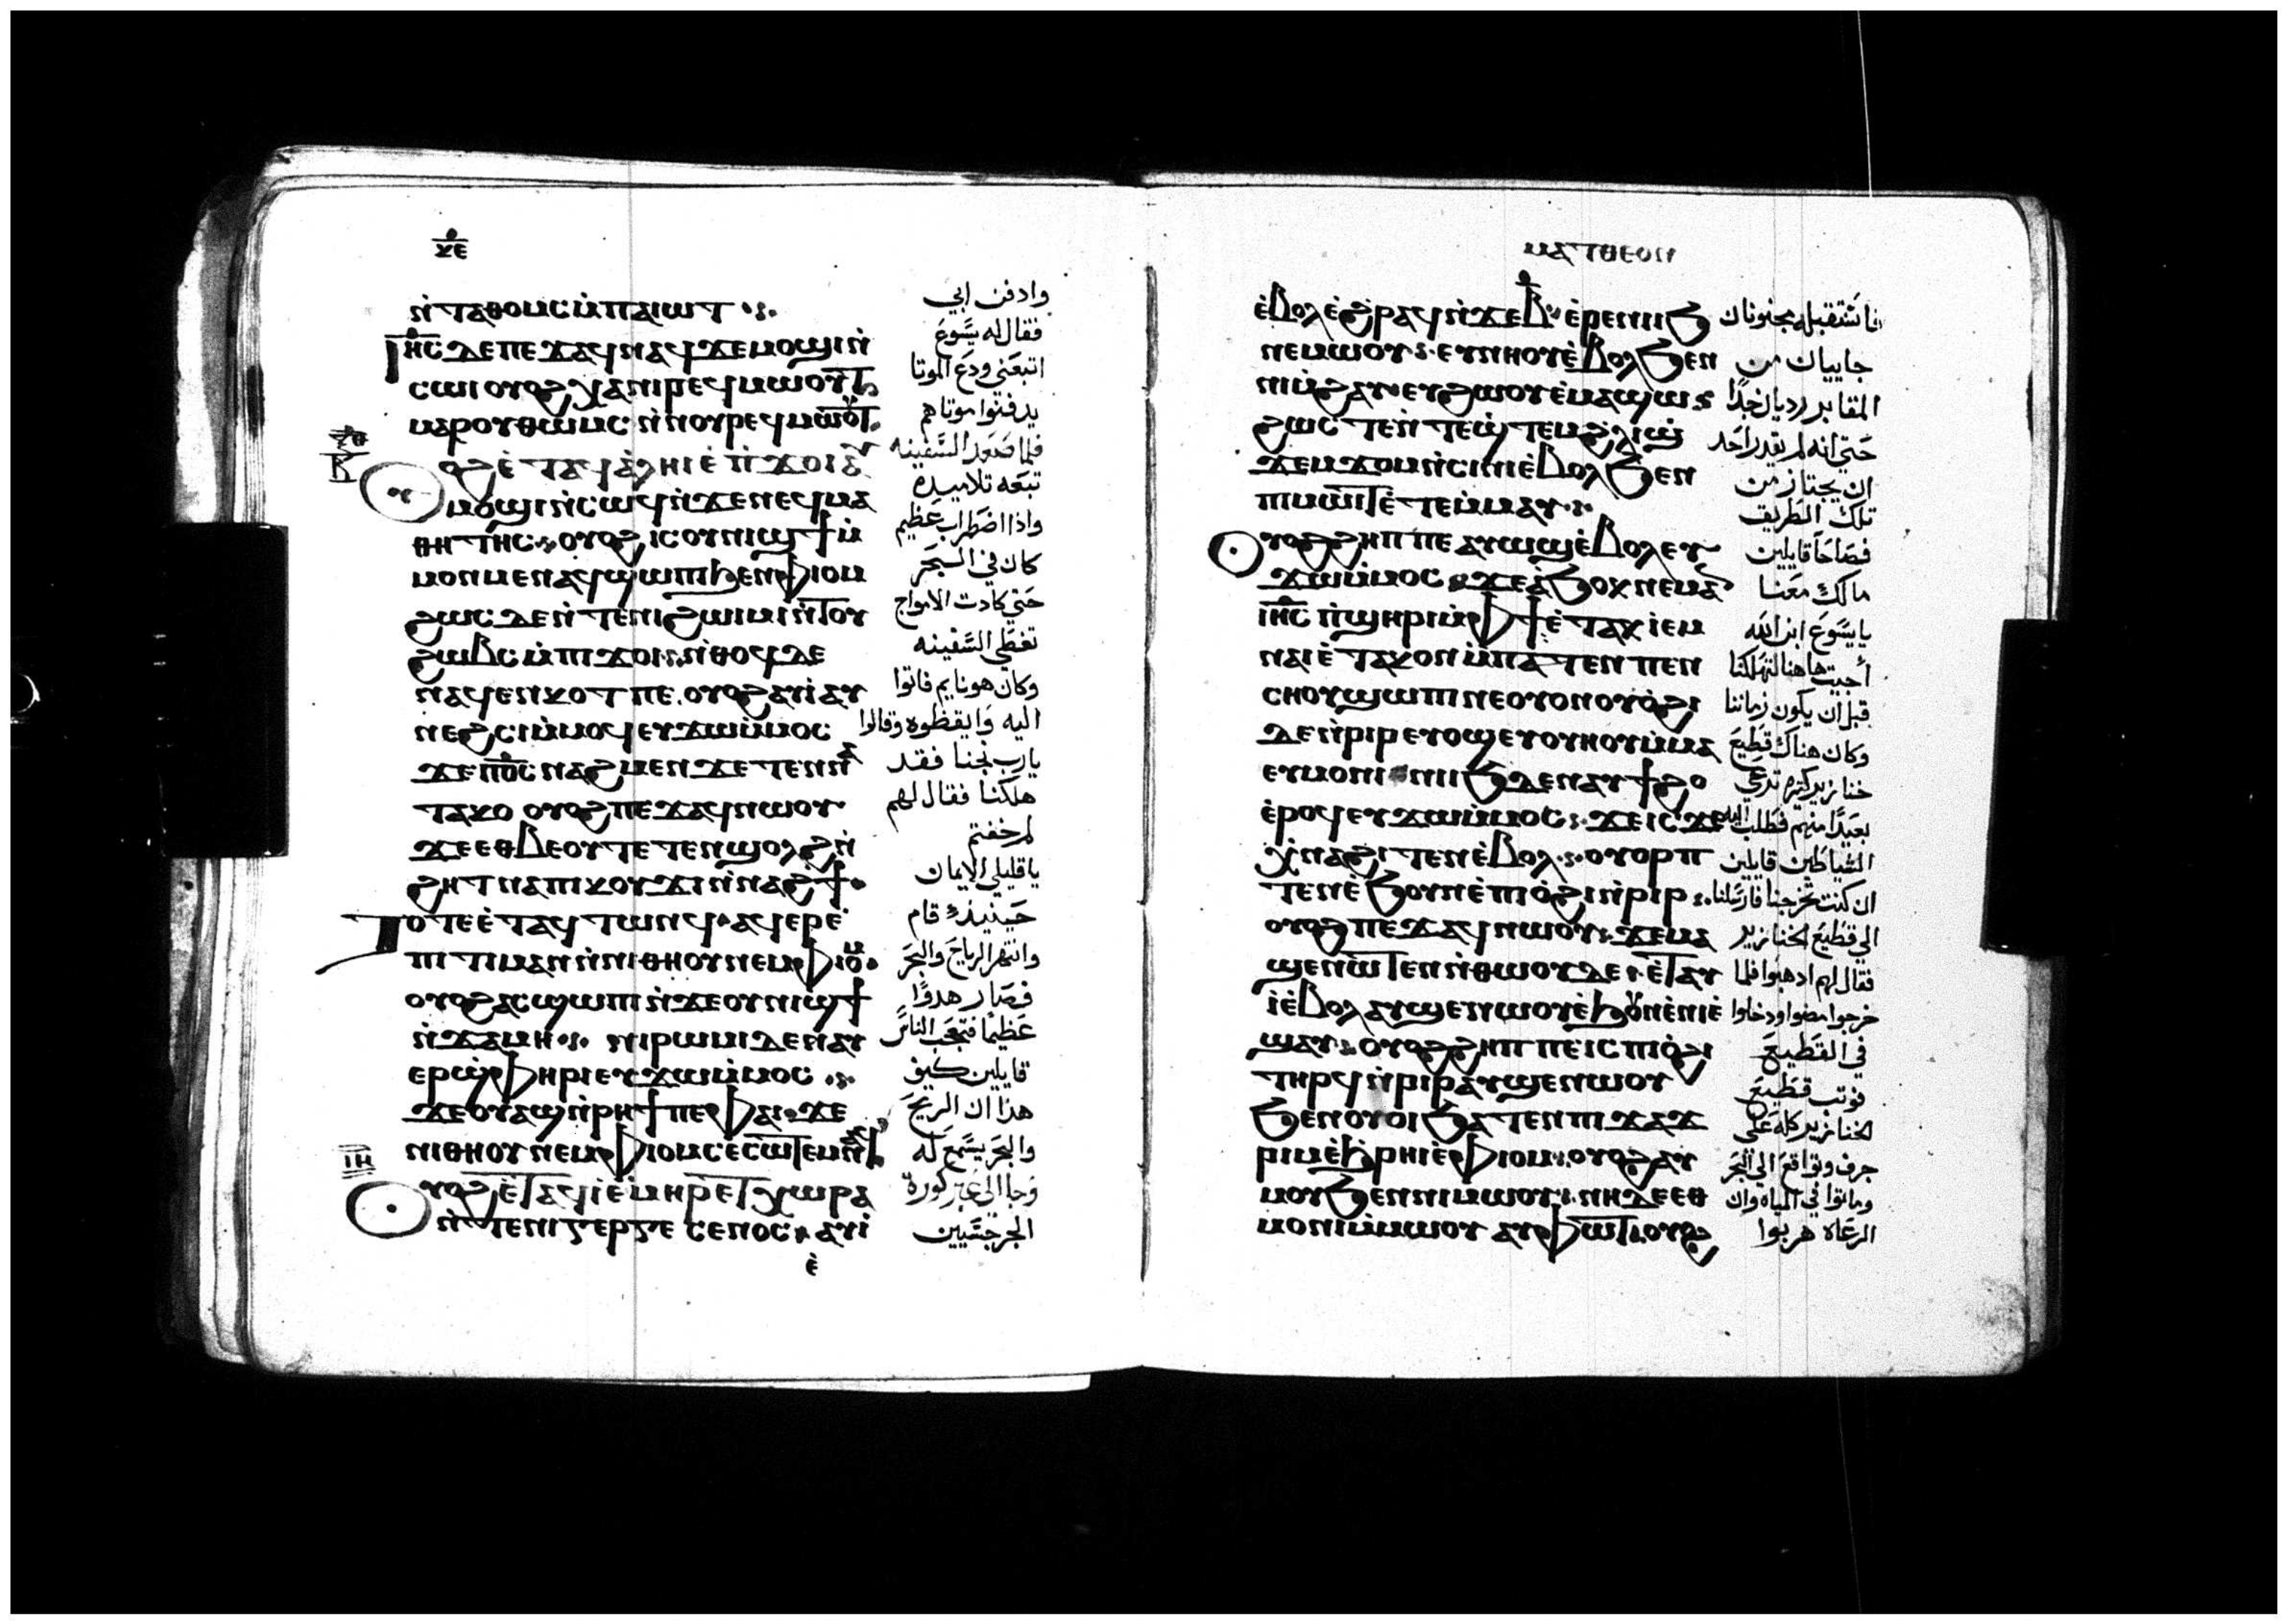 ⲕⲉ
ⲛ̇ⲧⲁⲑⲟⲙⲥ ⲙ̇ⲡⲁⲓⲱⲧ
ⲓⲏⲥ ⲇⲉ ⲡⲉϫⲁϥ ⲛⲁϥ ϫⲉ ⲙⲟϣⲓ ⲛ̇
ⲥⲱⲓ ⲟⲩⲟϩ ⲭⲁ ⲛⲓⲣⲉϥⲙⲱⲟⲩⲧ
ⲙⲁⲣⲟⲩⲑⲱⲙⲥ ⲛ̇ⲛⲟⲩⲣⲉϥⲙⲱⲟⲩⲧ
ⲟⲩⲟϩ ⲉ̇ⲧⲁϥⲁ̇ⲗⲏⲓ ⲉ̇ⲡ̇ϫⲟⲓ ⲁⲩ
ⲙⲟϣⲓ ⲛ̇ⲥⲱϥ ⲛ̇ϫⲉ ⲛⲉϥⲙⲁ
ⲑⲏⲧⲏⲥ ⲟⲩⲟϩ ⲓⲥ ⲟⲩⲛⲓϣϯ ⲙ̇
ⲙⲟⲛⲙⲉⲛ ⲁϥϣⲱⲡⲓ ϧⲉⲛ ⲫⲓⲟⲙ
ϩⲱⲥⲇⲉ ⲛ̇ⲧⲉ ⲛⲓϩⲱⲓⲙⲓ ⲛ̇ⲧⲟⲩ
ϩⲱⲃⲥ ⲙ̇ⲡⲓϫⲟⲓ ⲛ̇ⲑⲟϥ ⲇⲉ
ⲛⲁϥⲉⲛⲕⲟⲧ ⲡⲉ ⲟⲩⲟϩ ⲁⲩⲓ̇ ⲁⲩ
ⲛⲉϩⲥⲓ ⲙ̇ⲙⲟϥ ⲉⲩϫⲱ ⲙ̇ⲙⲟⲥ
ϫⲉ ⲡ̅ⲟ̅ⲥ̅ ⲛⲁϩⲙⲉⲛ ϫⲉ ⲧⲉⲛⲛⲁ
ⲧⲁⲕⲟ ⲟⲩⲟϩ ⲡⲉϫⲁϥ ⲛⲱⲟⲩ
ϫⲉ ⲉⲑⲃⲉⲟⲩ ⲧⲉⲧⲉⲛϣⲟⲗϩ ⲛ̇
ϩⲏⲧ ⲛⲁ ⲡⲓⲕⲟⲩϫⲓ ⲛ̇ⲛⲁϩϯ
ⲧⲟⲧⲉ ⲉ̇ⲧⲁϥⲧⲱⲛϥ ⲁϥⲉⲣⲉ̇
ⲡⲓⲧⲓⲙⲁⲛ ⲛ̇ⲛⲓⲑⲏⲟⲩ ⲛⲉⲙ ⲫⲓⲟⲙ
ⲟⲩⲟϩ ⲁⲥϣⲱⲡⲓ ⲛ̇ϫⲉ ⲟⲩⲛⲓϣϯ
ⲛ̇ϫⲁⲙⲏ ⲛⲓⲣⲱⲙⲓ ⲇⲉ ⲛⲁⲩ
ⲉⲣϣ̇ⲫⲏⲣⲓ ⲉⲩϫⲱ ⲙ̇ⲙⲟⲥ
ϫⲉ ⲟⲩⲁϣ ⲛ̇ⲣⲏϯ ⲡⲉ ⲫⲁⲓ ϫⲉ
ⲛⲓⲑⲏⲟⲩ ⲛⲉⲙ ⲫⲓⲟⲙ ⲥⲉⲥⲱⲧⲉⲙ ⲛⲁϥ
ⲓⲏ
ⲟⲩⲟϩ ⲉ̇ⲧⲁϥⲓ̇ ⲉ̇ⲙⲏⲣ ⲉ̇ⲧⲭⲱⲣⲁ
ⲛ̇ⲧⲉ ⲛⲓⲅⲉⲣⲅⲉⲥⲉⲛⲟⲥ ⲁⲩⲓ̇
ⲉ̇
وادفن ابي
فقال له يسوع
اتبعني ودع الموتا
يدفنوا موتاهم
فلما صعد السفينه
تبعه تلاميده
واذا اضطراب عظيم
كان في البحر
حتي كادت الامواج
تغطي السفينه
وكان هو نايم فاتوا
اليه وايقظوه وقالوا
يارب نجنا فقد
هلكنا فقال لهم
لم خفتم
يا قليلي الايمان
حينيذ قام
وانتهر الرياح والبحر
فصار هدوا
عظيما فتعجب الناس
قايلين كيف
هذا ان الريح
والبحر يسمع له
وجا الي عبر كورة
الجرجسيين
ⲙⲁⲧⲑⲉⲟⲛ
ⲉ̇ⲃⲟⲗ ⲉ̇ϩⲣⲁϥ ⲛ̇ϫⲉ ⲃ ⲉ̇ⲣⲉ ⲛⲓⲓϧ
ⲛⲉⲙⲱⲟⲩ ⲉⲩⲛⲏⲟⲩ ⲉ̇ⲃⲟⲗ ϧⲉⲛ
ⲛⲓⲙ̇ϩⲁⲩ ⲉⲩϩⲱⲟⲩ ⲉ̇ⲙⲁϣⲱ
ϩⲱⲥ ⲧⲉⲛ ⲧⲉϣⲧⲉⲙ ϩ̇ⲗⲓ ϣ̇
ϫⲉⲙϫⲟⲙ ⲛ̇ⲥⲓⲛⲓ ⲉ̇ⲃⲟⲗ ϧⲉⲛ
ⲡⲓⲙⲱⲓⲧ ⲉ̇ⲧⲉⲙ̇ⲙⲁⲩ
ⲟⲩⲟϩ ϩⲏⲡⲡⲉ ⲁⲩⲱϣ ⲉ̇ⲃⲟⲗ ⲉⲩ
ϫⲱ ⲙ̇ⲙⲟⲥ ϫⲉ ⲁ̇ϧⲟⲕ ⲛⲉⲙⲁⲛ
ⲓⲏⲥ ⲡ̇ϣⲏⲣⲓ ⲙ̇ⲫϯ ⲉ̇ⲧⲁⲕⲓ̇ ⲉⲙ
ⲛⲁⲓ ⲉ̇ⲧⲁⲕⲟⲛ ⲙ̇ⲡⲁⲧⲉⲛ ⲡⲉⲛ
ⲥⲏⲟⲩ ϣⲱⲡⲓ ⲛⲉ ⲟⲩⲟⲛ ⲟⲩⲟ̇ϩⲓ
ⲇⲉ ⲛ̇ⲣⲓⲣ ⲉⲩⲟϣ ⲉⲩⲟⲩⲏⲟⲩ ⲙ̇ⲙⲁⲩ
ⲉⲩⲙⲟⲛⲓ ⲛⲓⲓϧ ⲇⲉ ⲛⲁⲩϯϩⲟ
ⲉ̇ⲣⲟϥ ⲉⲩϫⲱ ⲙ̇ⲙⲟⲥ ϫⲉ ⲓⲥϫⲉ
ⲭⲛⲁϩⲓⲧⲉⲛ ⲉ̇ⲃⲟⲗ ⲟⲩⲟⲣⲡ
ⲧⲉⲛ ⲉ̇ϧⲟⲩⲛ ⲉ̇ⲡⲓⲟ̇ϩⲓ ⲛ̇ⲣⲓⲣ
ⲟⲩⲟϩ ⲡⲉϫⲁϥ ⲛⲱⲟⲩ ϫⲉ ⲙⲁ
ϣⲉⲛⲱⲧⲉⲛ ⲛ̇ⲑⲱⲟⲩ ⲇⲉ ⲉ̇ⲧⲁⲩ
ⲓ̇ ⲉ̇ⲃⲟⲗ ⲁⲩϣⲉⲛⲱⲟⲩ ⲉ̇ϧⲟⲩⲛ ⲉ̇ⲛⲓⲉ̇
ϣⲁⲩ ⲟⲩⲟϩ ϩⲏⲡⲡⲉ ⲓⲥ ⲡⲓⲟ̇ϩⲓ
ⲧⲏⲣϥ ⲛ̇ⲣⲓⲣ ⲁⲩϣⲉⲛⲱⲟⲩ
ϧⲉⲛ ⲟⲩⲟⲓ ϧⲁⲧⲉⲛ ⲡⲓϫⲁϫ
ⲣⲓⲙ ⲉ̇ϧⲣⲏⲓ ⲉ̇ⲫⲓⲟⲙ ⲟⲩⲟϩ ⲁⲩ
ⲙⲟⲩ ϧⲉⲛ ⲛⲓⲙⲱⲟⲩ ⲛⲏ ⲇⲉ ⲉⲑ
ⲙⲟⲛⲓ ⲙ̇ⲙⲱⲟⲩ ⲁⲩⲫⲱⲧ ⲟⲩⲟϩ
فاستقبله مجنونان
جاييان من
المقابر رديان جدا
حتي انه لم يقدر احد
ان يجتاز من
تلك الطريق
فصاحا قايلين
مالك معنا
يا يسوع ابن الله
أجيت هاهنا لتهلكنا
قبل ان يكون زماننا
وكان هناك قطيع
خنازير كثيره ترعي
بعيدا منهم فطلب اليه
الشياطين قايلين
ان كنت تخرجنا فارسلنا
الي قطيع الخنازير
فقال لهم ادهبوا فلما
خرجوا مضوا ودخلوا
في القطيع
فوتب قطيع
الخنازير كله علي
جرف وتواقع الي البحر
وماتوا في المياه وان
الرعاه هربوا